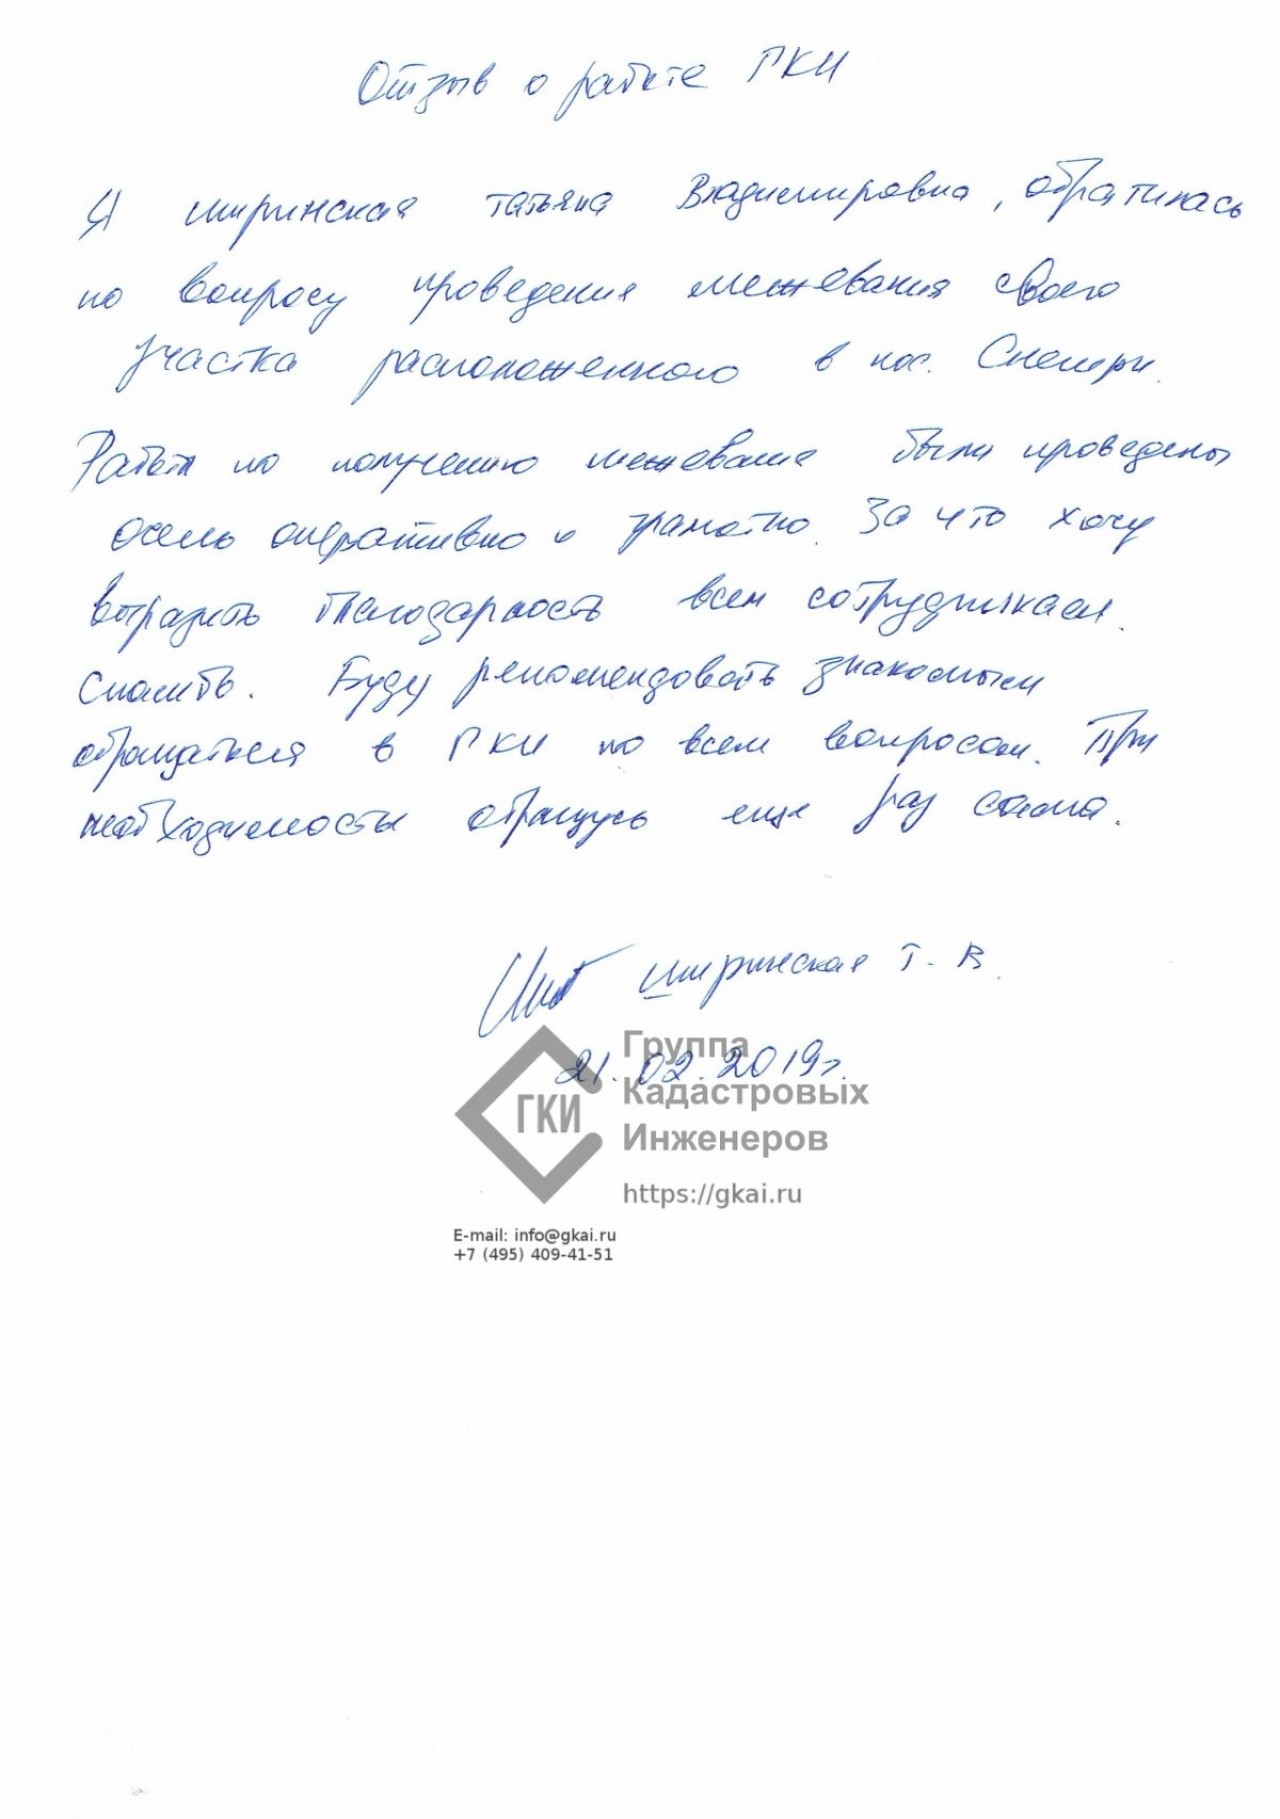 Отзыв о работе ГКИ
Я Ширинская Татьяна Владимировна, обратилась
по вопросу проведения межевания своего
участка расположенного в пос. Снегири.
Работы по получению межевание были проведены
очень оперативно и грамотно. За что хочу
выразить благодарность всем сотрудникам.
Спасибо. Буду рекомендовать знакомым
обращаться в ГКИ по всем вопросам. При
необходимости обращусь еще раз сама.
Ширинская Т. В.
21.02.2019г.
ГКИ
Группа
Кадастровых
Инженеров
https://gkai.ru
E-mail: info@gkai.ru
+7 (495) 409-41-51